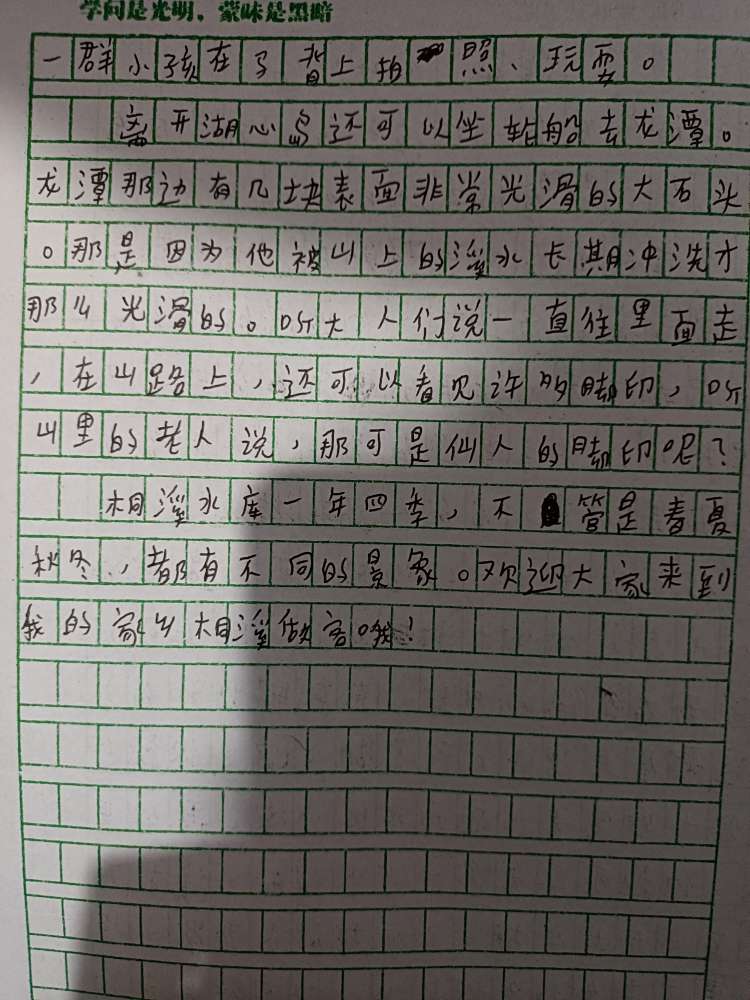 学问是光明，蒙昧是黑暗
一群小孩在马背上拍照、玩耍。
离开湖心岛还可以坐轮船去龙潭。
龙潭那边有几块表面非常光滑的大石头
。那是因为他被山上的溪水长期冲洗才
那么光滑的。听大人们说一直往里面走
，在山路上，还可以看见许多脚印，听
山里的老人说，那可是仙人的脚印呢？
桐溪水库一年四季，不管是春夏
秋冬，都有不同的景象。欢迎大家来到
我的家乡桐溪做客哦！